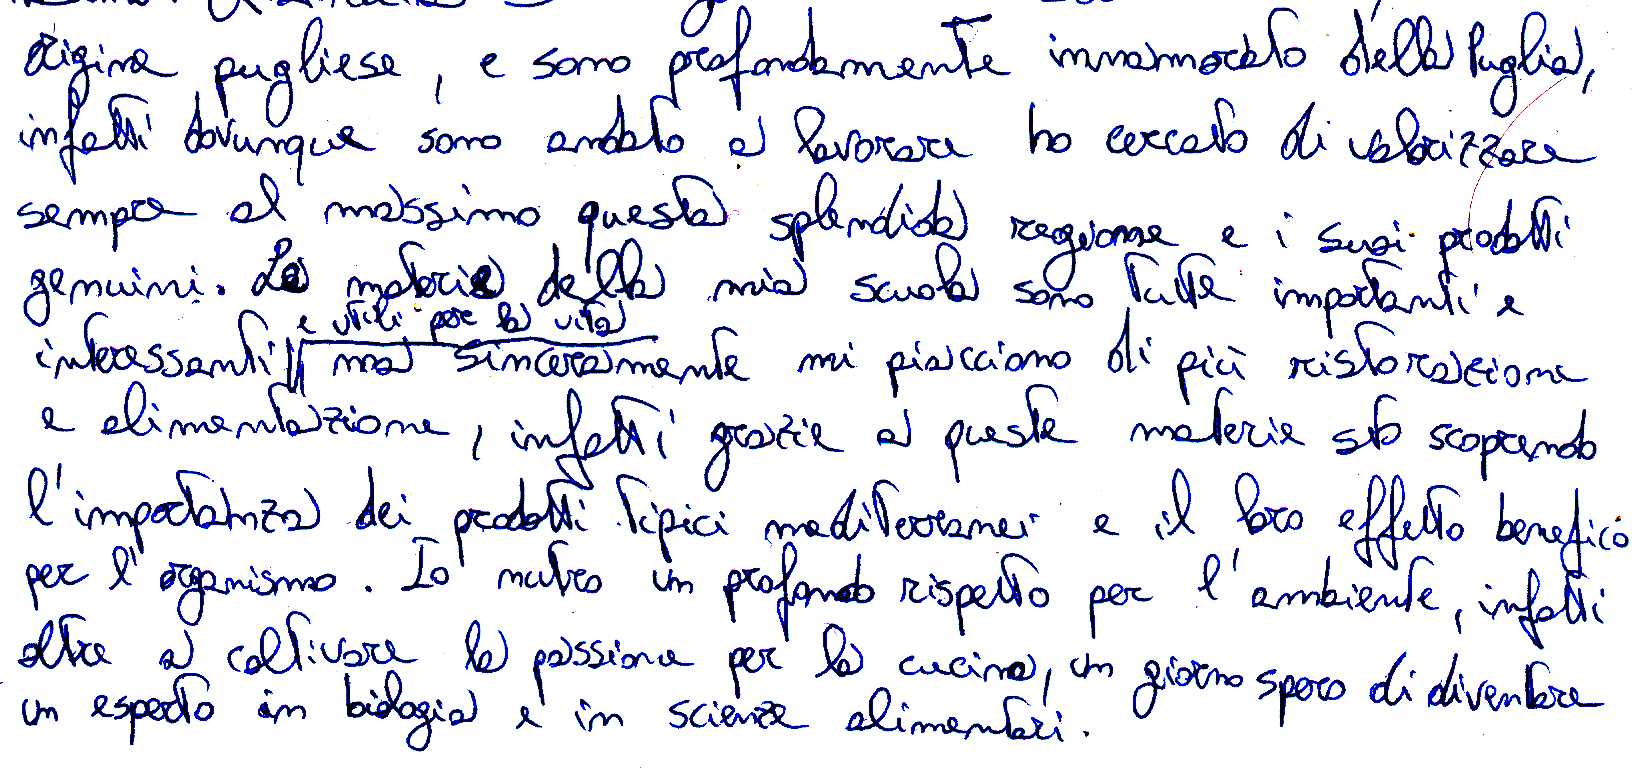 origine pugliese, e sono profondamente innamorato della Puglia,
infatti dovunque sono andato a lavorare ho cercato di valorizzare
sempre al massimo questa splendida regione e i suoi prodotti
genuini. Le materie della mia scuola sono tutte importanti e
e utili per la vita
interessanti ma sinceramente mi piacciono di più ristorazione
e alimentazione, infatti grazie a queste materie sto scoprendo
l'importanza dei prodotti tipici mediterranei e il loro effetto benefico
per l'organismo. Io nutro un profondo rispetto per l'ambiente, infatti
oltre a coltivare la passione per la cucina, un giorno spero di diventare
un esperto in biologia e in scienze alimentari.